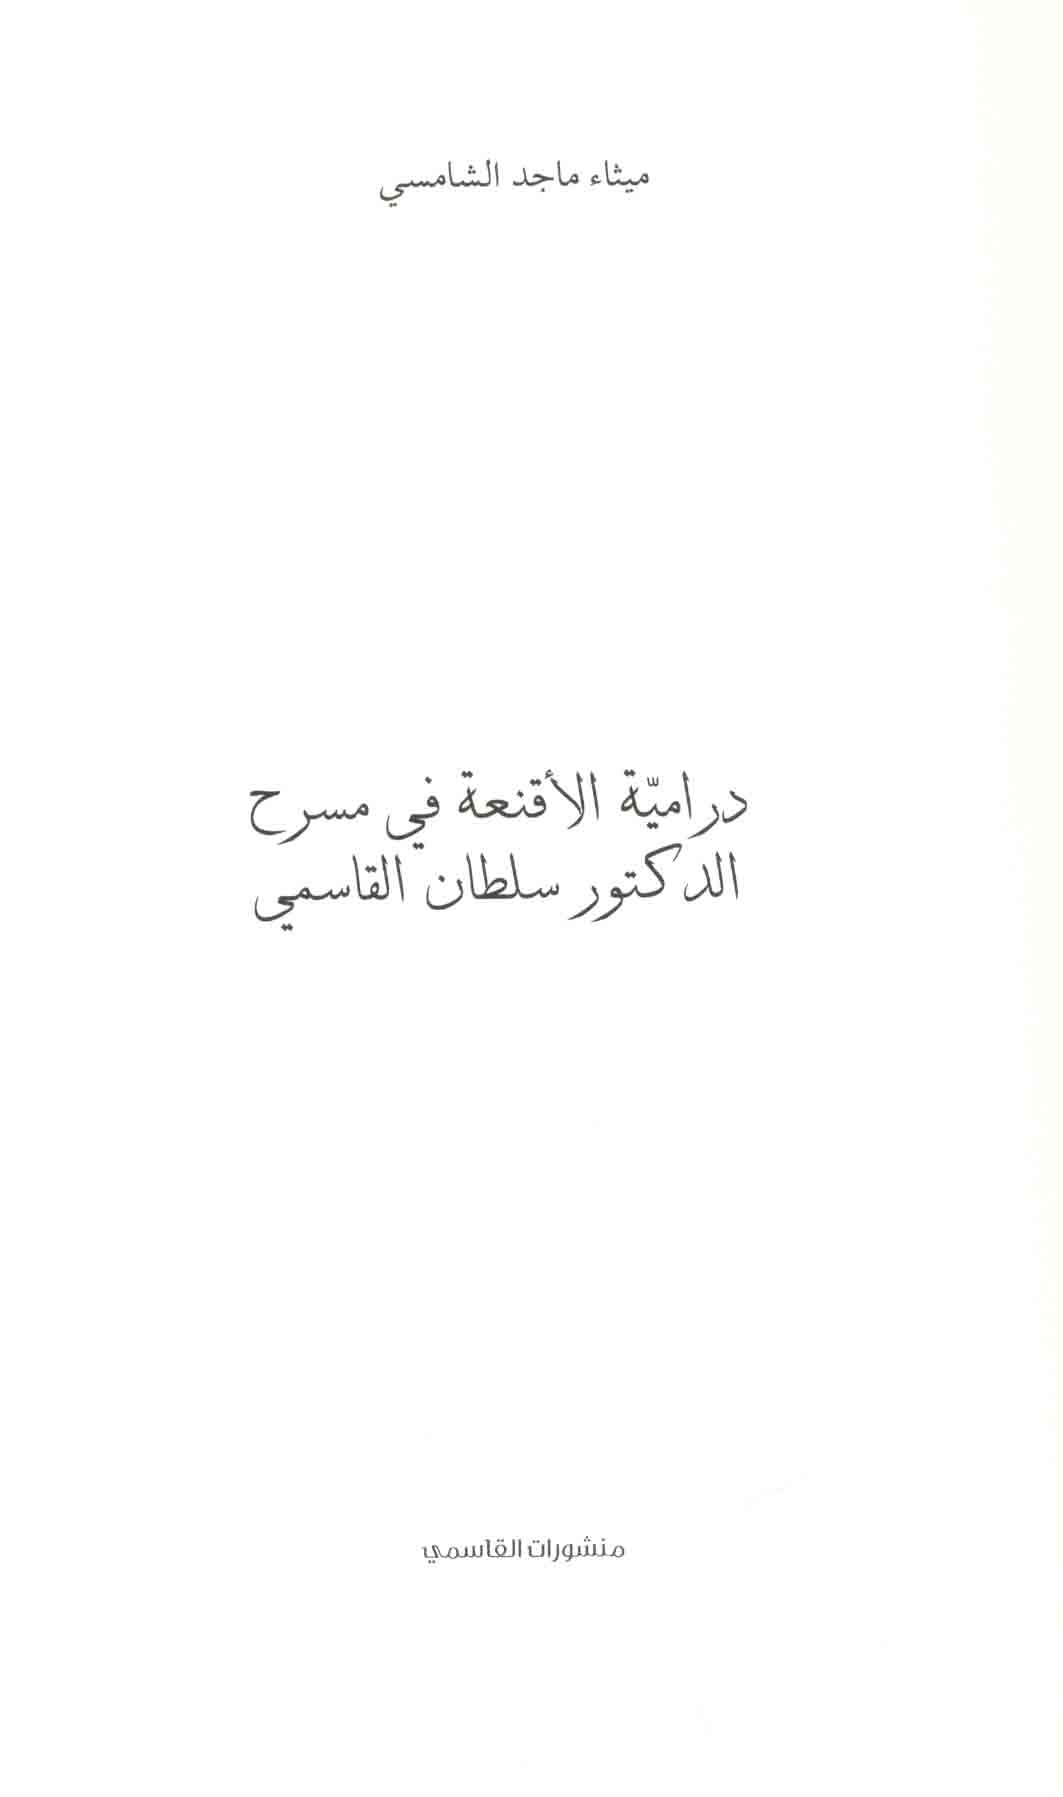 ميثاء ماجد الشامسي
دراميّة الأقنعة في مسرح
الدكتور سلطان القاسمي
منشورات القاسمي